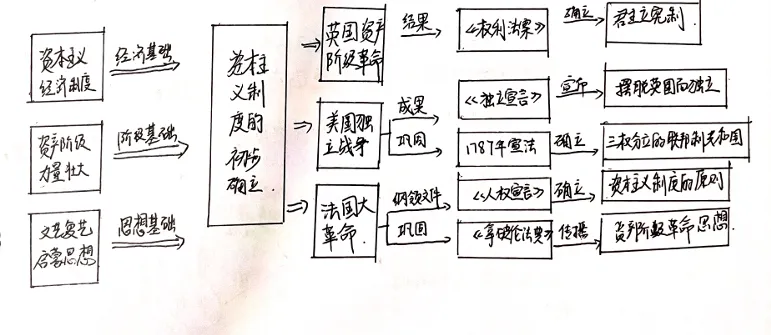 资本主义
经济制度
经济基础
资产阶级
力量壮大
阶级基础
文艺复兴
启蒙思想
思想基础
资本主
义制
度的
初步
确立.
英国资产
阶级革命
结果
《权利法案》
确立
君主立宪制.
美国独
立战争
成果
《独立宣言》
宣布
摆脱英国而独立
巩固
1787年宪法
确立
三权分立的联邦制共和国
法国大
革命.
纲领文件
《人权宣言》
确立
资本主义制度的原则
巩固
《拿破仑法典》
传播
资产阶级革命思想.